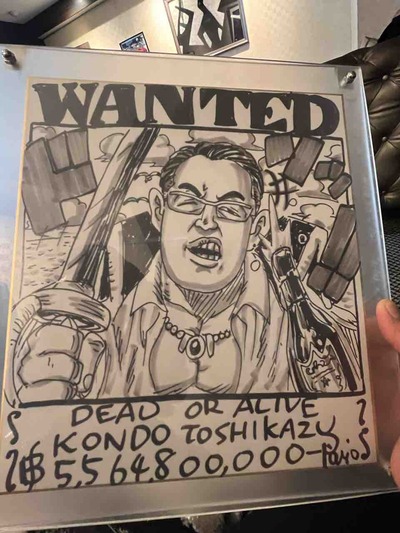 WANTED
ド
ン
DEAD OR ALIVE
KONDO TOSHIKAZU
฿5,564,800,000-